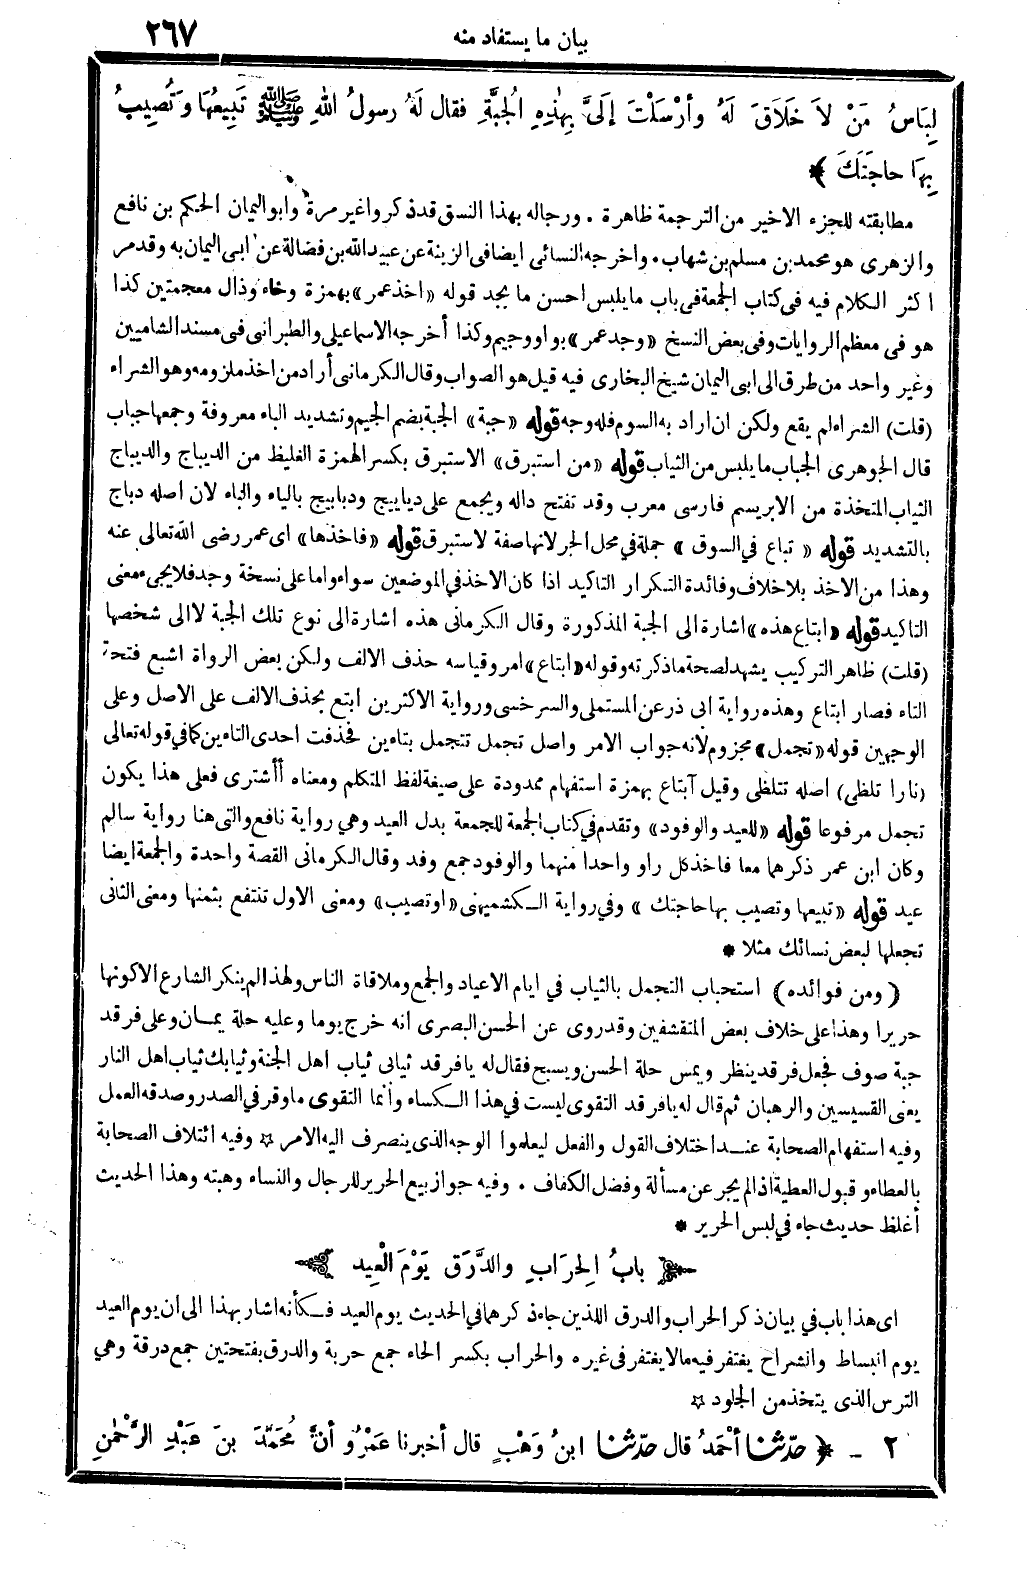 بيان ما يستفاد منه
٢٦٧
لِبَاسُ مَنْ لاَ خَلَاقَ لَهُ وأرْسَلْتَ إلَىَّ بِهٰذِهِ الْجُبَّةِ فقال لَهُ رسولُ اللهِ ﷺ تَبِيعُهَا وَتُصِيبُ
بِهَا حاجَتَكَ ﴾
مطابقته للجزء الاخير من الترجمة ظاهرة . ورجاله بهذا النسق قد ذكروا غير مرة وابو اليمان الحكم بن نافع
والزهرى هو محمد بن مسلم بن شهاب . واخرجه النسائى ايضا فى الزينة عن عبيد الله بن فضالة عن ابى اليمان به وقد مر
اكثر الكلام فيه فى كتاب الجمعة فى باب ما يلبس احسن ما يجد قوله «اخذ عمر» بهمزة وخاء وذال معجمتين كذا
هو فى معظم الروايات وفى بعض النسخ «وجد عمر» بواو وجيم وكذا أخرجه الاسماعيلى والطبرانى فى مسند الشاميين
وغير واحد من طرق الى ابى اليمان شيخ البخارى فيه قيل هو الصواب وقال الكرمانى أراد من اخذ ملزومه وهو الشراء
(قلت) الشراء لم يقع ولكن ان اراد به السوم فله وجه قوله «جبة» الجبة بضم الجيم وتشديد الباء معروفة وجمعها جباب
قال الجوهرى الجباب ما يلبس من الثياب قوله «من استبرق» الاستبرق بكسر الهمزة الغليظ من الديباج والديباج
الثياب المتخذة من الابريسم فارسى معرب وقد تفتح داله ويجمع على ديابيج ودبابيج بالياء والباء لان اصله دباج
بالتشديد قوله « تباع في السوق » جملة في محل الجر لانها صفة لاستبرق قوله «فاخذها» اى عمر رضى الله تعالى عنه
وهذا من الاخذ بلا خلاف وفائدة التكرار التاكيد اذا كان الاخذ في الموضعين سواء واما على نسخة وجد فلا يجىء معنى
التاكيد قوله «ابتاع هذه» اشارة الى الجبة المذكورة وقال الكرمانى هذه اشارة الى نوع تلك الجبة لا الى شخصها
(قلت) ظاهر التركيب يشهد لصحة ما ذكرته وقوله «ابتاع» امر وقياسه حذف الالف ولكن بعض الرواة اشبع فتحة
التاء فصار ابتاع وهذه رواية ابى ذر عن المستملى والسرخسى ورواية الاكثرين ابتع بحذف الالف على الاصل وعلى
الوجهين قوله «تجمل» مجزوم لانه جواب الامر واصل تجمل تتجمل بتاءين فحذفت احدى التاءين كما في قوله تعالى
(نارا تلظى) اصله تتلظى وقيل آبتاع بهمزة استفهام ممدودة على صيغة لفظ المتكلم ومعناه أأشترى فعلى هذا يكون
تجمل مرفوعا قوله «للعيد والوفود» وتقدم في كتاب الجمعة للجمعة بدل العيد وهي رواية نافع والتى هنا رواية سالم
وكان ابن عمر ذكرهما معا فاخذ كل راو واحدا منهما والوفود جمع وفد وقال الكرمانى القصة واحدة والجمعة ايضا
عيد قوله «تبيعها وتصيب بها حاجتك » وفي رواية الكشميهنى «او تصيب» ومعنى الاول تنتفع بثمنها ومعنى الثانى
تجعلها لبعض نسائك مثلا *
(ومن فوائده) استحباب التجمل بالثياب في ايام الاعياد والجمع وملاقاة الناس ولهذا لم ينكر الشارع الا كونها
حريرا وهذا على خلاف بعض المتقشفين وقد روى عن الحسن البصرى انه خرج يوما وعليه حلة يمان وعلى فرقد
جبة صوف فجعل فرقد ينظر ويمس حلة الحسن ويسبح فقال له يا فرقد ثيابى ثياب اهل الجنة وثيابك ثياب اهل النار
يعنى القسيسين والرهبان ثم قال له يا فرقد التقوى ليست في هذا الكساء وأنما التقوى ما وقر في الصدر وصدقه العمل
وفيه استفهام الصحابة عند اختلاف القول والفعل ليعلموا الوجه الذى ينصرف اليه الامر ☆ وفيه ائتلاف الصحابة
بالعطاء وقبول العطية اذا لم يجر عن مسألة وفضل الكفاف . وفيه جواز بيع الحرير للرجال والنساء وهبته وهذا الحديث
أغلظ حديث جاء في لبس الحرير *
بابُ الْحِرَابِ والدَّرَقِ يَوْمَ الْعِيدِ
اى هذا باب في بيان ذكر الحراب والدرق اللذين جاء ذكرهما في الحديث يوم العيد فكأنه اشار بهذا الى ان يوم العيد
يوم انبساط وانشراح يغتفر فيه ما لا يغتفر في غيره والحراب بكسر الحاء جمع حربة والدرق بفتحتين جمع درقة وهي
الترس الذى يتخذ من الجلود ☆
٢ - ﴿ حدّثنا أحْمَدُ قال حدّثنا ابنُ وَهْبٍ قال أخبرنا عَمْرٌو أنَّ مُحَمَّدَ بنَ عَبْدِ الرَّحْمٰنِ